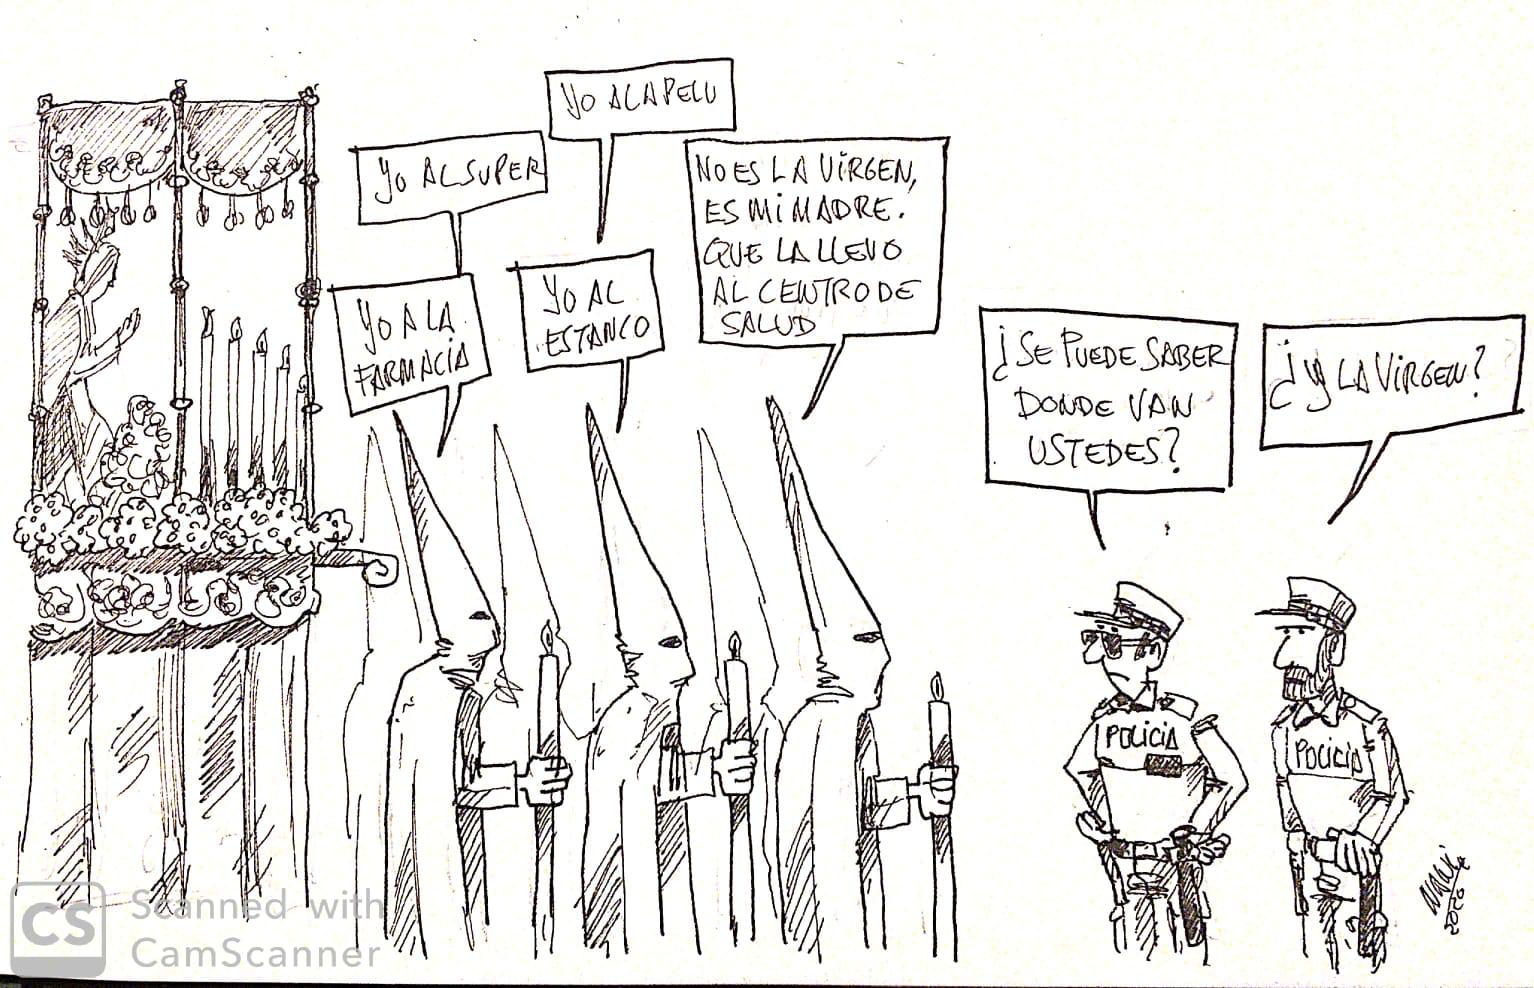 YO A LA PELU
YO AL SUPER
NO ES LA VIRGEN,
ES MI MADRE.
QUE LA LLEVO
AL CENTRO DE
SALUD
YO A LA
FARMACIA
YO AL
ESTANCO
¿SE PUEDE SABER
DONDE VAN
USTEDES?
¿Y LA VIRGEN?
POLICIA
POLICIA
2020
CS
Scanned with
CamScanner